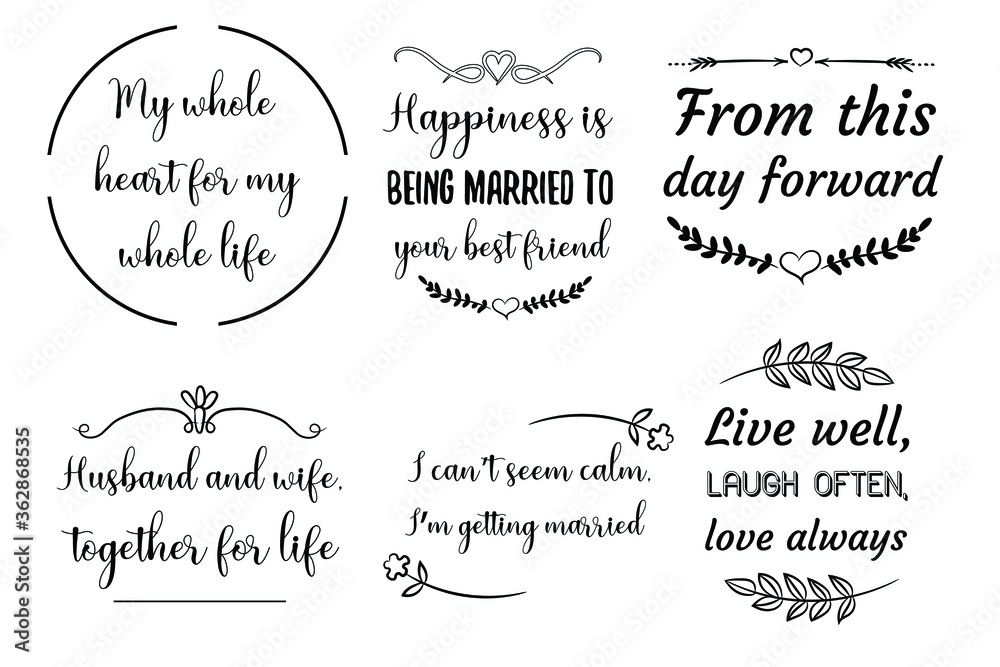 My whole
heart for my
whole life
Happiness is
BEING MARRIED TO
your best friend
From this
day forward
Husband and wife,
together for life
I can't seem calm,
I'm getting married
Live well,
LAUGH OFTEN,
love always
Adobe Stock | #362868535
Adobe Stock